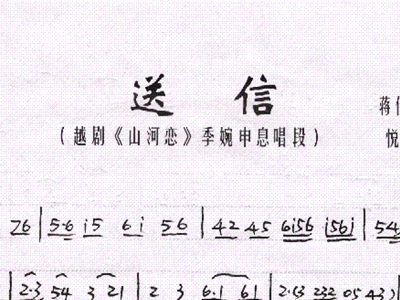 送 信
(越剧《山河恋》季婉申息唱段)
蒋
悦
76 | 5·6 i5 6i 56 | 42 45 6i56 i56i | 54
2·3 54 3 21 | 2 3 6·1 61 | 2·(3 232 05 43)